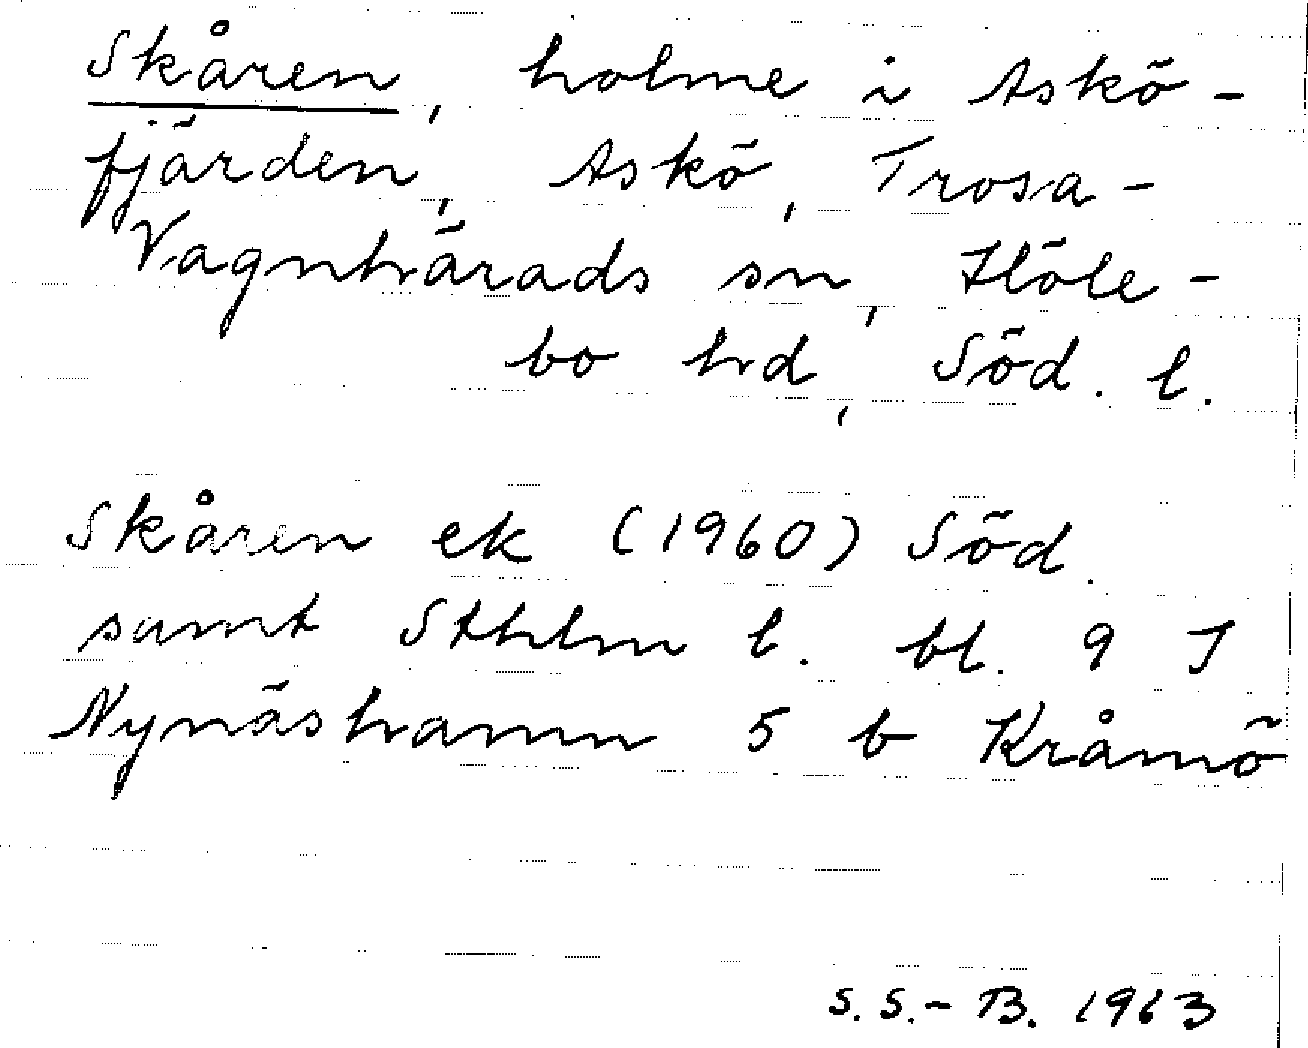 Skåren, holme i Askö-
fjärden, Askö, Trosa-
Vagnhärads sn, Höle-
bo hd, Söd. l.
Skåren ek (1960) Söd.
samt Sthlm l. bl. 9 J
Nynäshamn 5 b Kråmö
S.S.-B. 1963